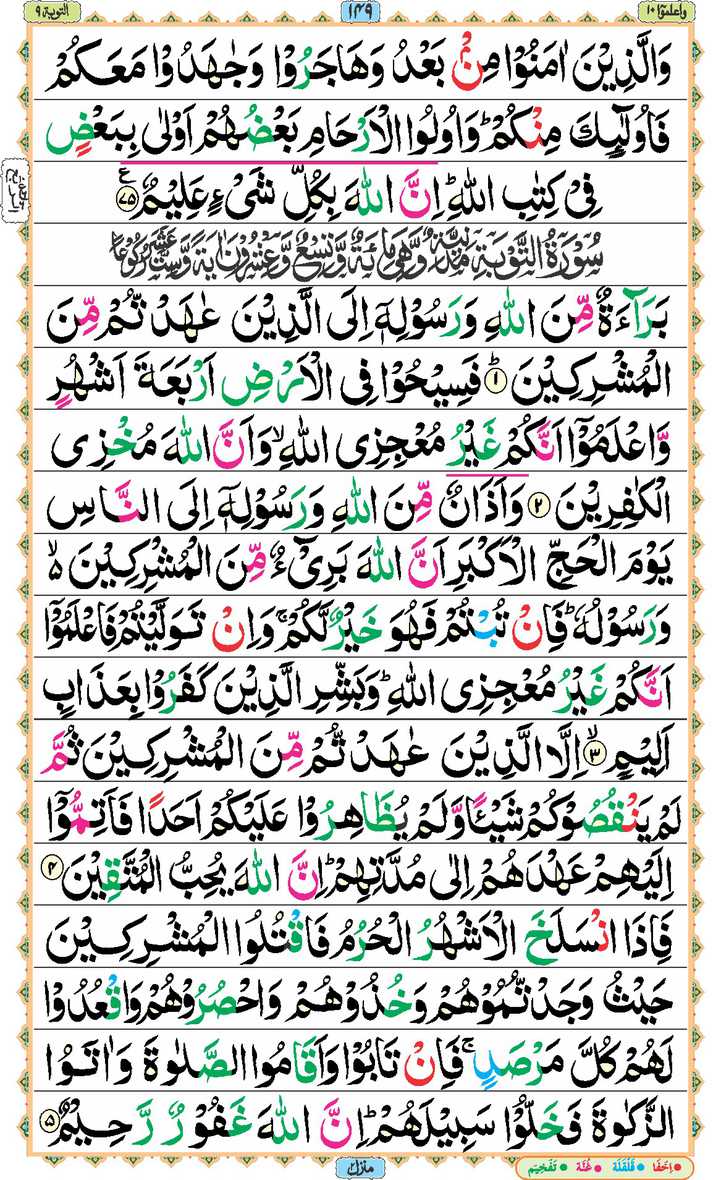 التوبة ٩
١٤٩
واعلموٓا ١٠
وَالَّذِيْنَ اٰمَنُوْا مِنْۢ بَعْدُ وَهَاجَرُوْا وَجٰهَدُوْا مَعَكُمْ
فَاُولٰٓئِكَ مِنْكُمْ ؕ وَاُولُوا الْاَرْحَامِ بَعْضُهُمْ اَوْلٰى بِبَعْضٍ
فِىْ كِتٰبِ اللّٰهِ ؕ اِنَّ اللّٰهَ بِكُلِّ شَىْءٍ عَلِيْمٌ ۧ ﴿۷۵﴾
سُوْرَةُ التَّوْبَةِ مَدَنِيَّةٌ وَّهِىَ مِائَةٌ وَّتِسْعٌ وَّعِشْرُوْنَ اٰيَةً وَّسِتَّ عَشَرَ رُكُوْعًا
بَرَآءَةٌ مِّنَ اللّٰهِ وَرَسُوْلِهٖۤ اِلَى الَّذِيْنَ عٰهَدْتُّمْ مِّنَ
الْمُشْرِكِيْنَ ؕ ﴿۱﴾ فَسِيْحُوْا فِى الْاَرْضِ اَرْبَعَةَ اَشْهُرٍ
وَّاعْلَمُوْۤا اَنَّكُمْ غَيْرُ مُعْجِزِى اللّٰهِ ۙ وَاَنَّ اللّٰهَ مُخْزِى
الْكٰفِرِيْنَ ﴿۲﴾ وَاَذَانٌ مِّنَ اللّٰهِ وَرَسُوْلِهٖۤ اِلَى النَّاسِ
يَوْمَ الْحَجِّ الْاَكْبَرِ اَنَّ اللّٰهَ بَرِىْٓءٌ مِّنَ الْمُشْرِكِيْنَ ۙ۬
وَرَسُوْلُهٗ ؕ فَاِنْ تُبْتُمْ فَهُوَ خَيْرٌ لَّكُمْ ۚ وَاِنْ تَوَلَّيْتُمْ فَاعْلَمُوْۤا
اَنَّكُمْ غَيْرُ مُعْجِزِى اللّٰهِ ؕ وَبَشِّرِ الَّذِيْنَ كَفَرُوْا بِعَذَابٍ
اَلِيْمٍ ۙ ﴿۳﴾ اِلَّا الَّذِيْنَ عٰهَدْتُّمْ مِّنَ الْمُشْرِكِيْنَ ثُمَّ
لَمْ يَنْقُصُوْكُمْ شَيْـًٔا وَّلَمْ يُظَاهِرُوْا عَلَيْكُمْ اَحَدًا فَاَتِمُّوْۤا
اِلَيْهِمْ عَهْدَهُمْ اِلٰى مُدَّتِهِمْ ؕ اِنَّ اللّٰهَ يُحِبُّ الْمُتَّقِيْنَ ﴿۴﴾
فَاِذَا انْسَلَخَ الْاَشْهُرُ الْحُرُمُ فَاقْتُلُوا الْمُشْرِكِيْنَ
حَيْثُ وَجَدْتُّمُوْهُمْ وَخُذُوْهُمْ وَاحْصُرُوْهُمْ وَاقْعُدُوْا
لَهُمْ كُلَّ مَرْصَدٍ ۚ فَاِنْ تَابُوْا وَاَقَامُوا الصَّلٰوةَ وَاٰتَوُا
الزَّكٰوةَ فَخَلُّوْا سَبِيْلَهُمْ ؕ اِنَّ اللّٰهَ غَفُوْرٌ رَّحِيْمٌ ﴿۵﴾
منزل ٢
اِخفَا قَلقَلَة غُنَّة تَفخِيم